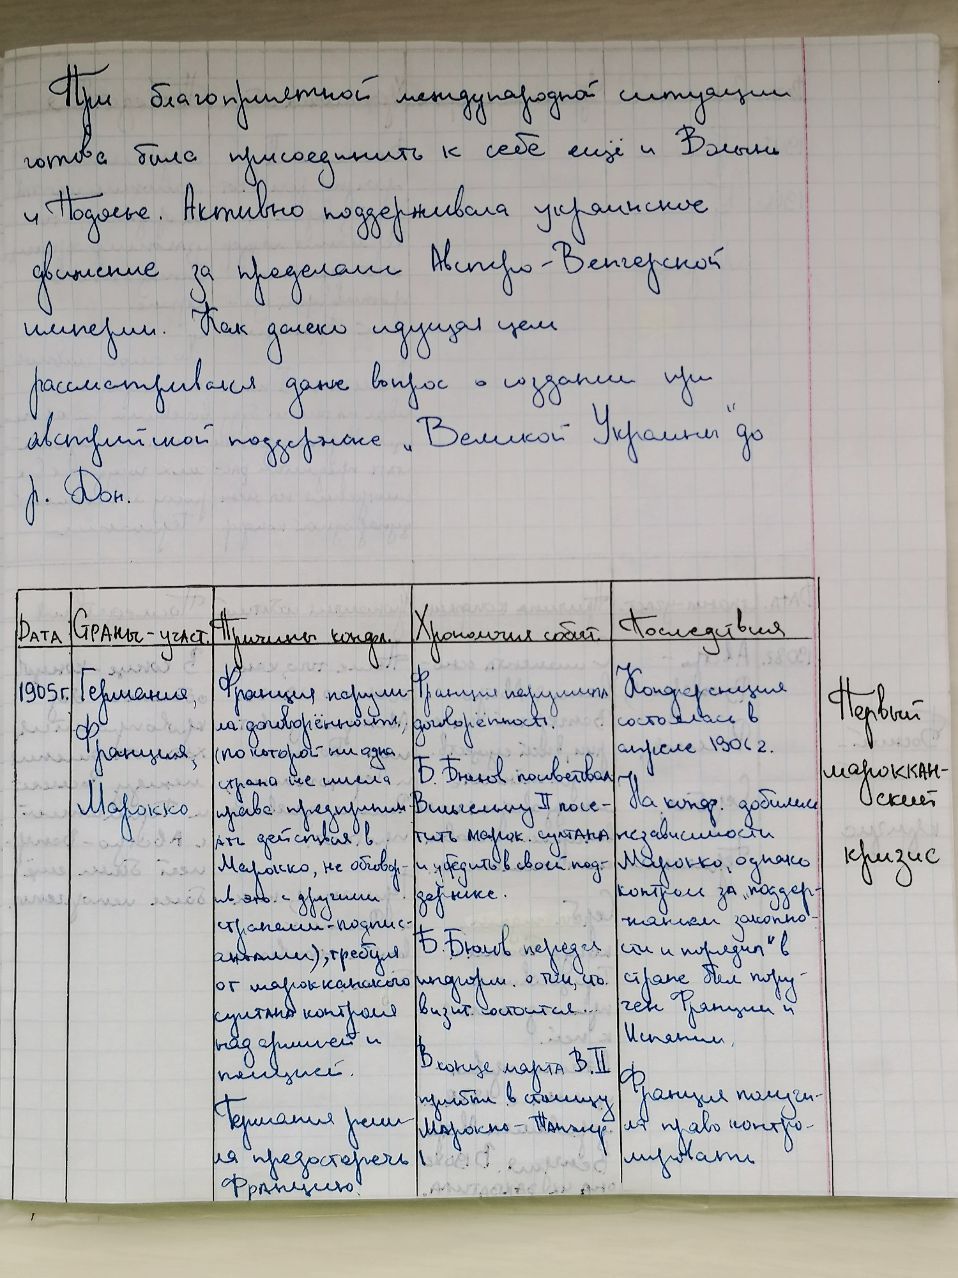 При благоприятной международной ситуации
готова была присоединить к себе ещё и Волынь
и Подолье. Активно поддерживала украинское
движение за пределами Австро-Венгерской
империи. Как далеко идущая цель
рассматривался даже вопрос о создании при
австрийской поддержке „Великой Украины" до
р. Дон.
Дата
Страны-участ.
Причины конфл.
Хронология событ.
Последствия
1905г.
Германия,
Франция,
Марокко
Франция наруши-
ла договорённости,
(по которой ни одна
страна не имела
права предприним-
ать действия в
Марокко, не обговор-
ив это с другими
странами-подпис-
антами), требуя
от марокканского
султана контроля
над армией и
полицией.
Германия реши-
ла предостеречь
Францию.
Франция нарушила
договорённости.
Б. Бюлов посоветовал
Вильгельму II посе-
тить марок. султана
и убедить в своей под-
держке.
Б. Бюлов передал
информ. о том, что
визит состоится...
В конце марта В. II
прибыл в столицу
Марокко - Танжер.
Конференция
состоялась в
апреле 1906г.
На конф. добились
независимости
Марокко, однако
контроль за „поддер-
жанием законно-
сти и порядка" в
стране был пору-
чен Франции и
Испании.
Франция получи-
ла право контро-
лировать
Первый
мароккан-
ский
кризис